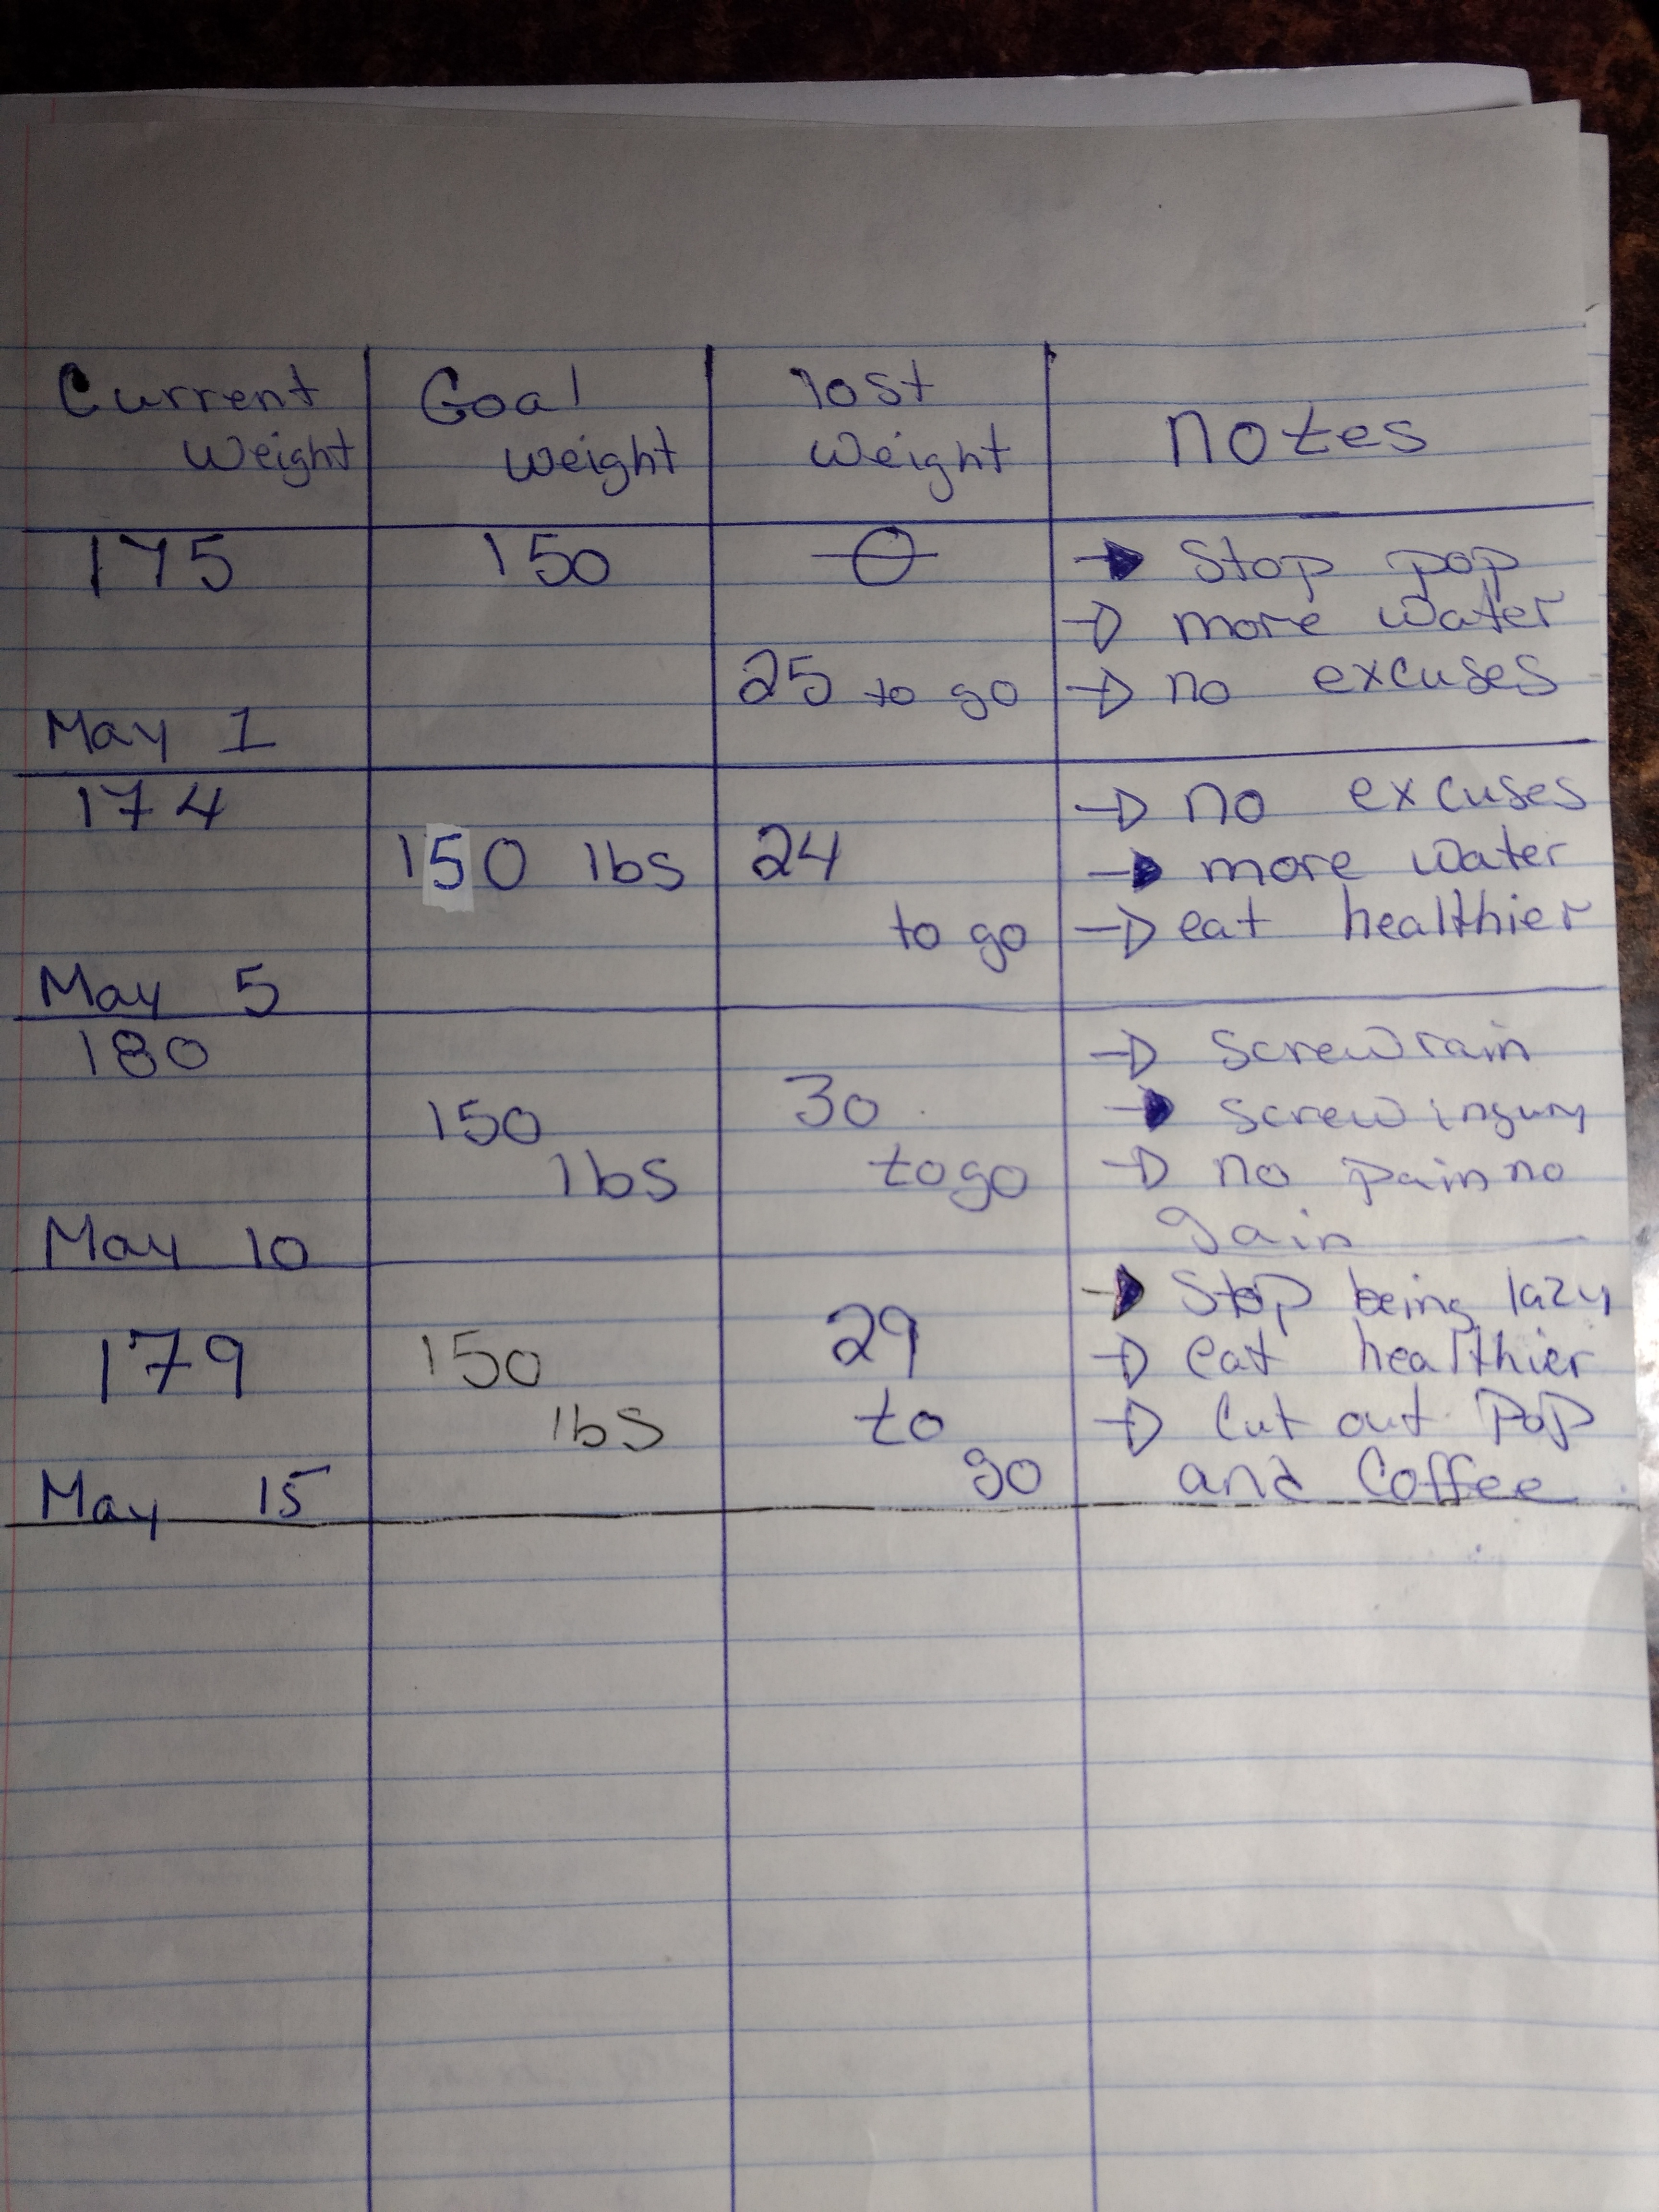 Current Goal lost notes
Weight weight weight
175 150 0 Stop pop
more water
25 to go no excuses
May 1
174 no excuses
150 lbs 24 more water
to go eat healthier
May 5
180 Screw rain
150 30 Screw injury
lbs to go no pain no
May 10 gain
Stop being lazy
179 150 29 eat healthier
lbs to Cut out Pop
May 15 go and Coffee